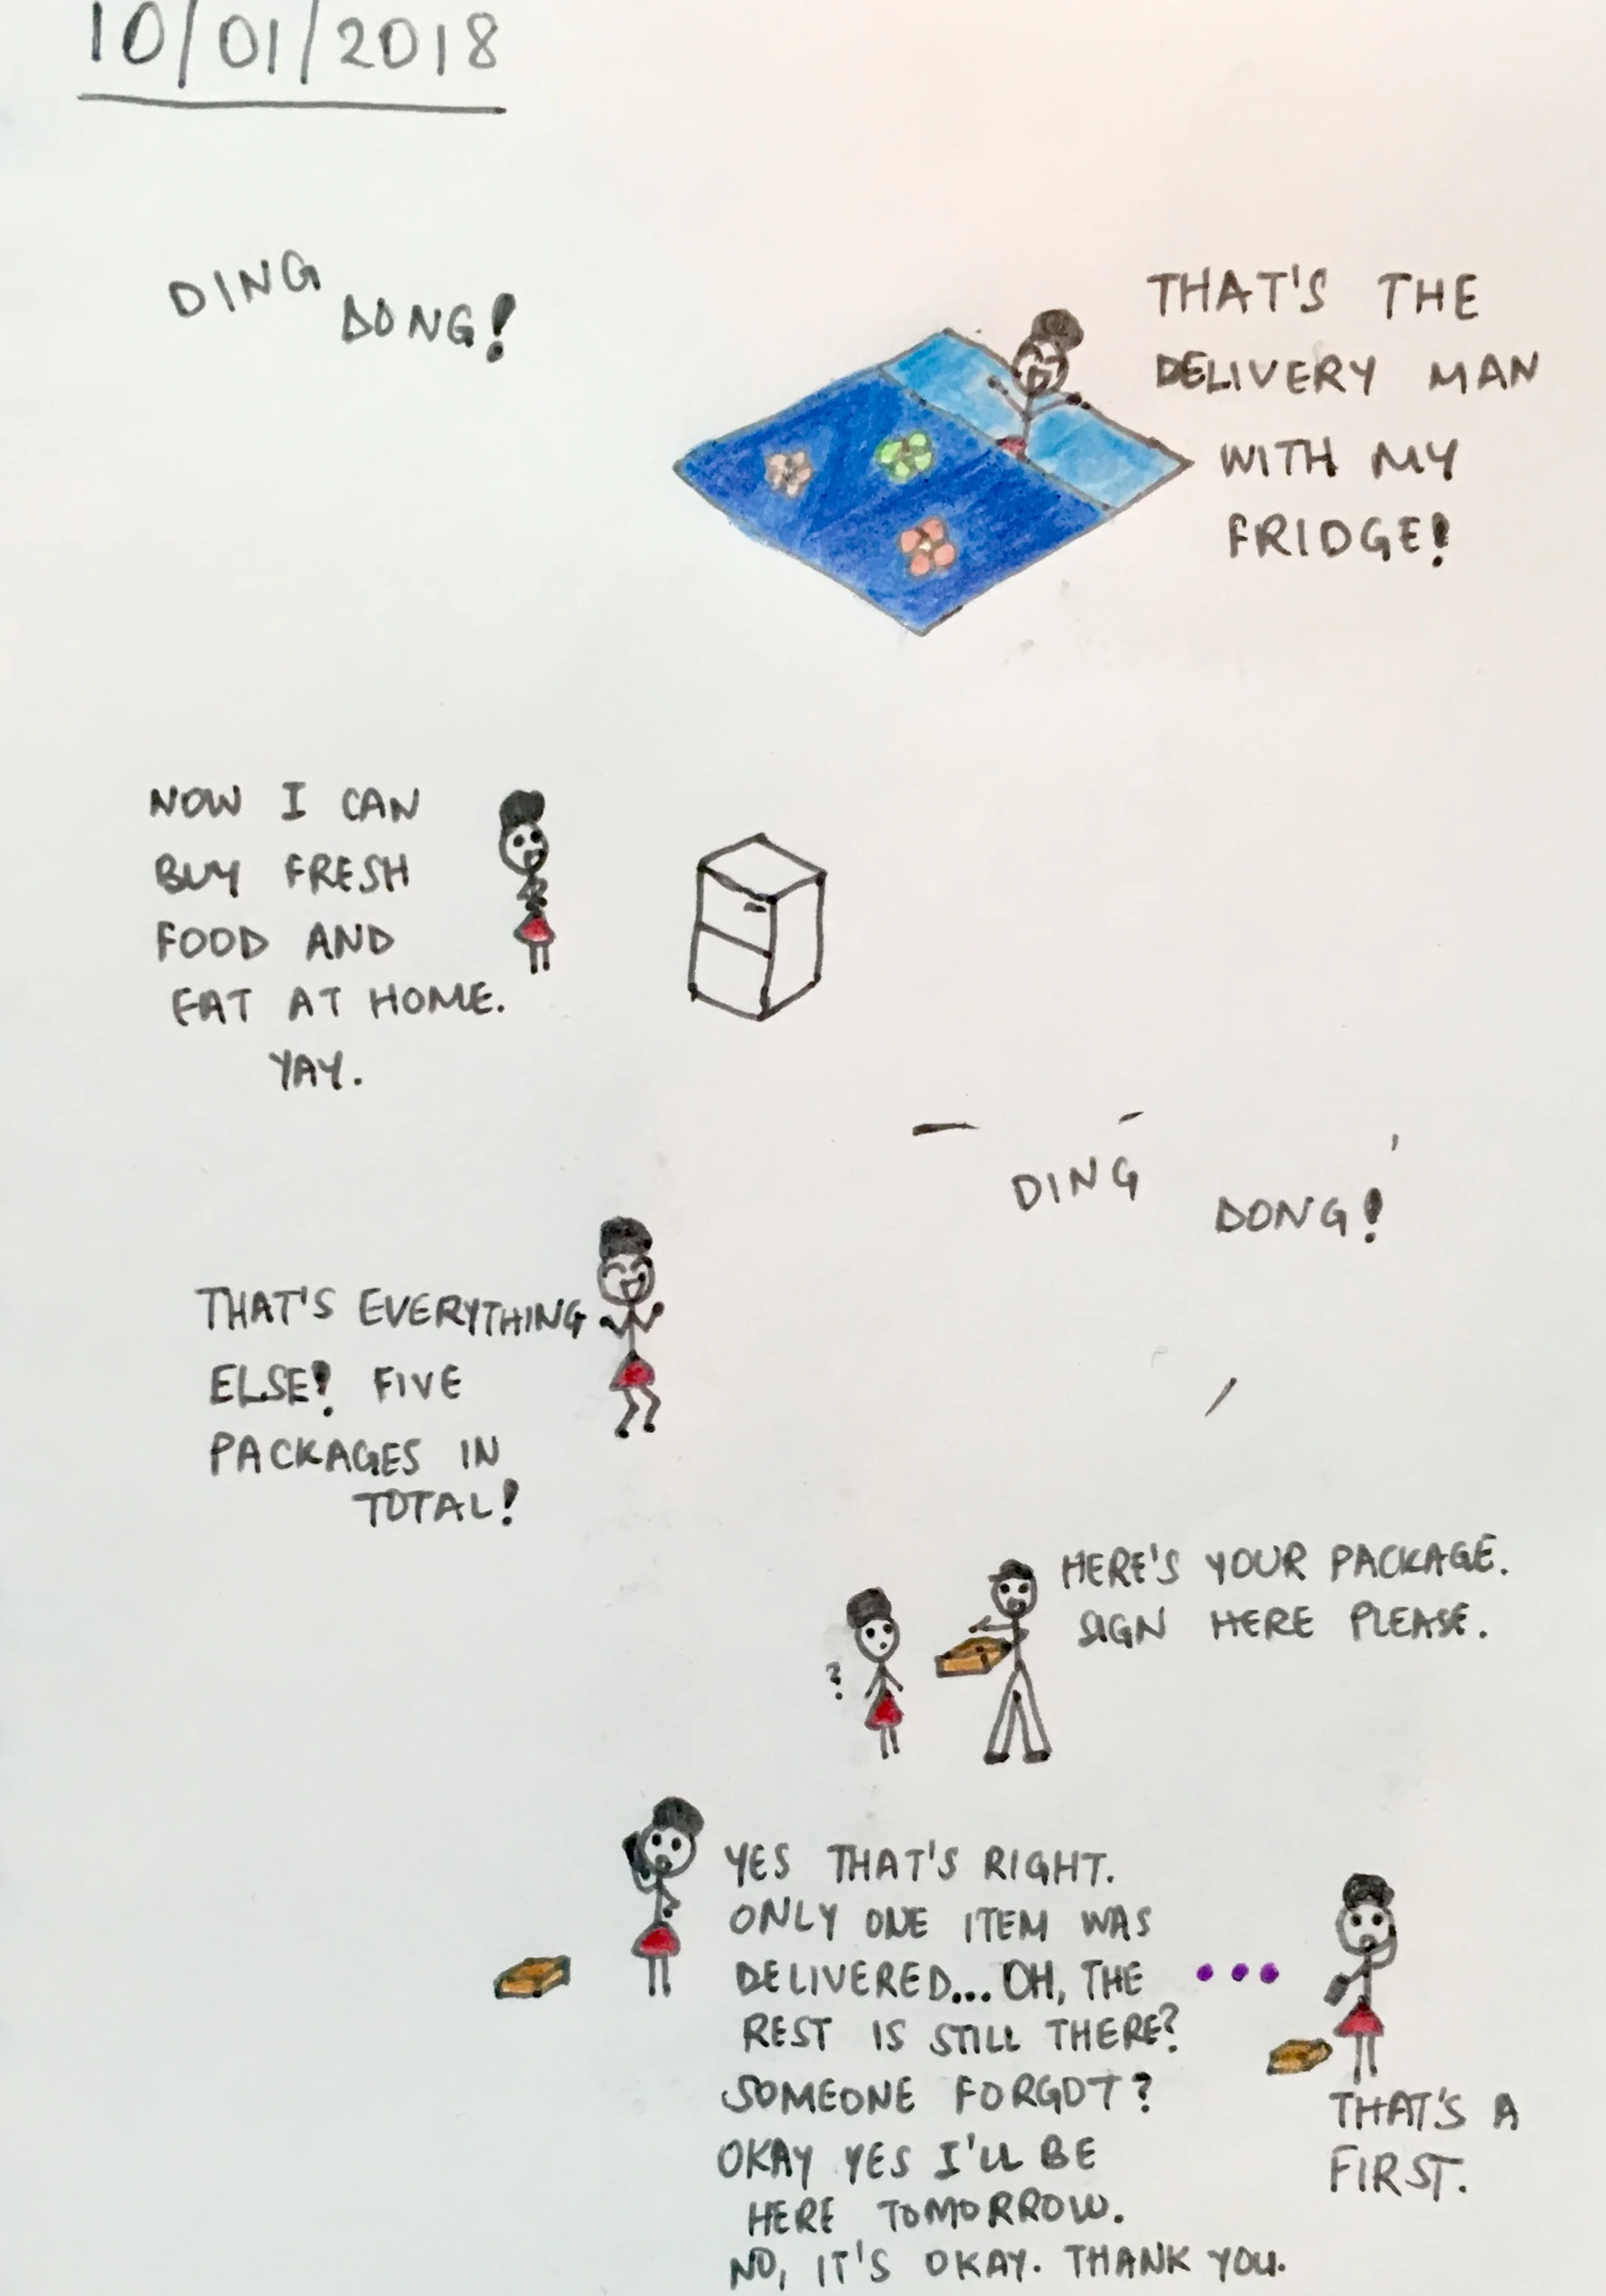 10/01/2018
DING
DONG!
THAT'S THE
DELIVERY MAN
WITH MY
FRIDGE!
NOW I CAN
BUY FRESH
FOOD AND
EAT AT HOME.
YAY.
DING
DONG!
THAT'S EVERYTHING
ELSE! FIVE
PACKAGES IN
TOTAL!
HERE'S YOUR PACKAGE.
SIGN HERE PLEASE.
?
YES THAT'S RIGHT.
ONLY ONE ITEM WAS
DELIVERED... OH, THE
REST IS STILL THERE?
SOMEONE FORGOT?
OKAY YES I'LL BE
HERE TOMORROW.
NO, IT'S OKAY. THANK YOU.
...
THAT'S A
FIRST.